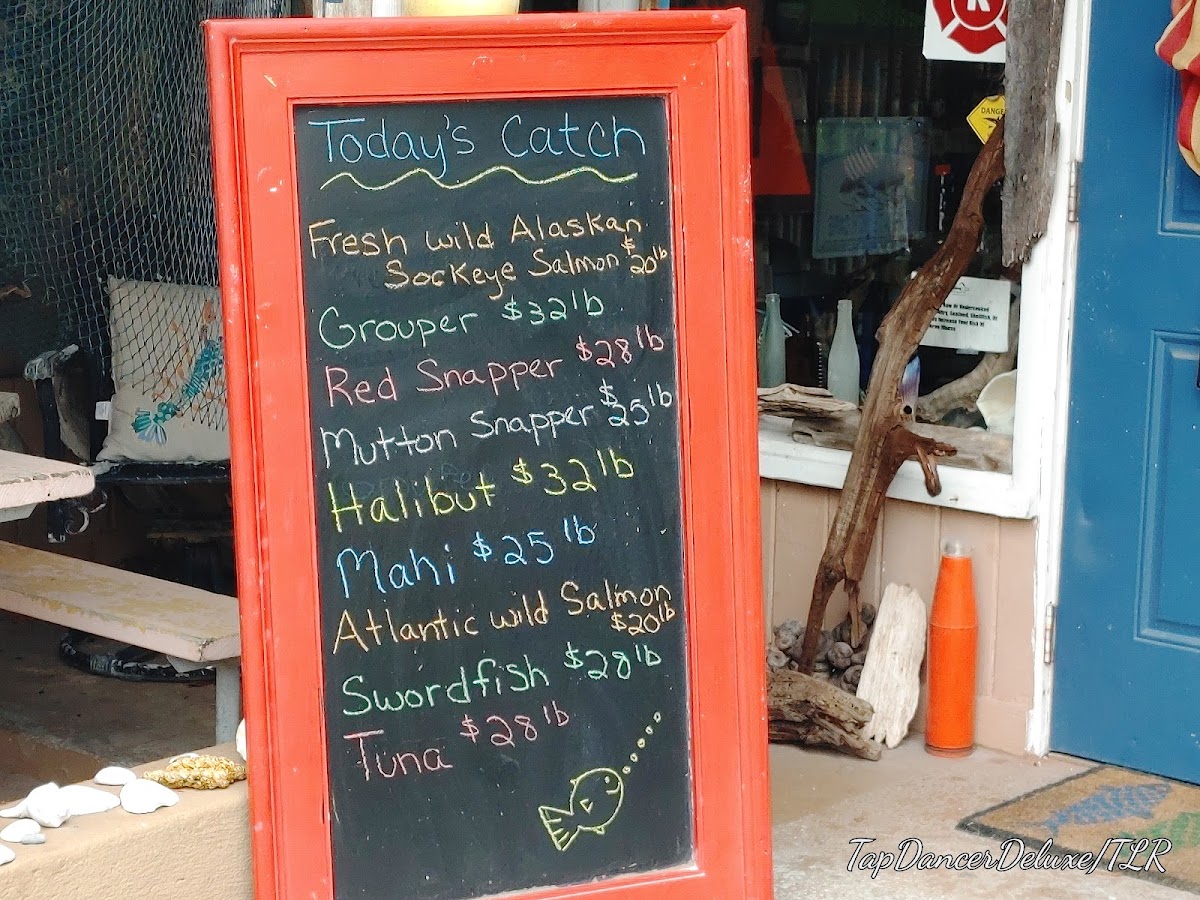 Today's Catch
Fresh wild Alaskan
Sockeye Salmon $20lb
Grouper $32lb
Red Snapper $28lb
Mutton Snapper $25lb
Halibut $32lb
Mahi $25lb
Atlantic wild Salmon
$20lb
Swordfish $28lb
Tuna $28lb
DANGER
TapDancerDeluxe/TLR